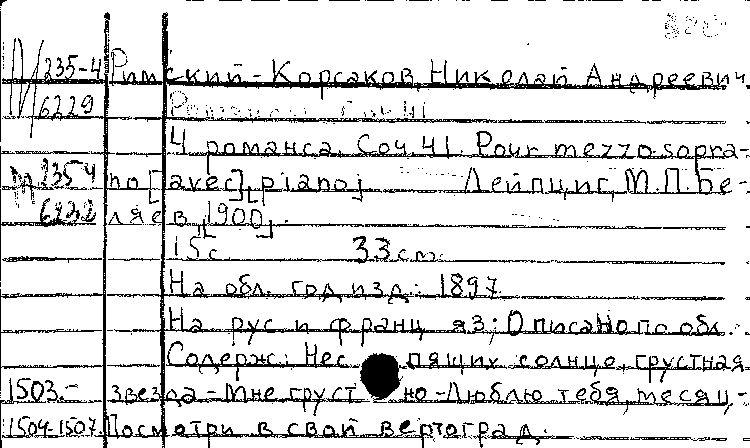 М 235-4 Римский-Корсаков, Николай Андреевич.
6229 Романсы. Соч. 41
4 романса. Соч. 41. Pour mezzo-sopra-
235-4 no [avec], [piano]. Лейпциг, М.П. Бе-
6232 ляев, [1900].
15 с. 33 см.
На обл. год изд.: 1897
На рус. и франц. яз.; Описано по обл.
Содерж.: Нес пящих солнце, грустная
1503.- звезда-Мне груст но-Люблю тебя, месяц,-
1504-1507. Посмотри в свой вертоград.